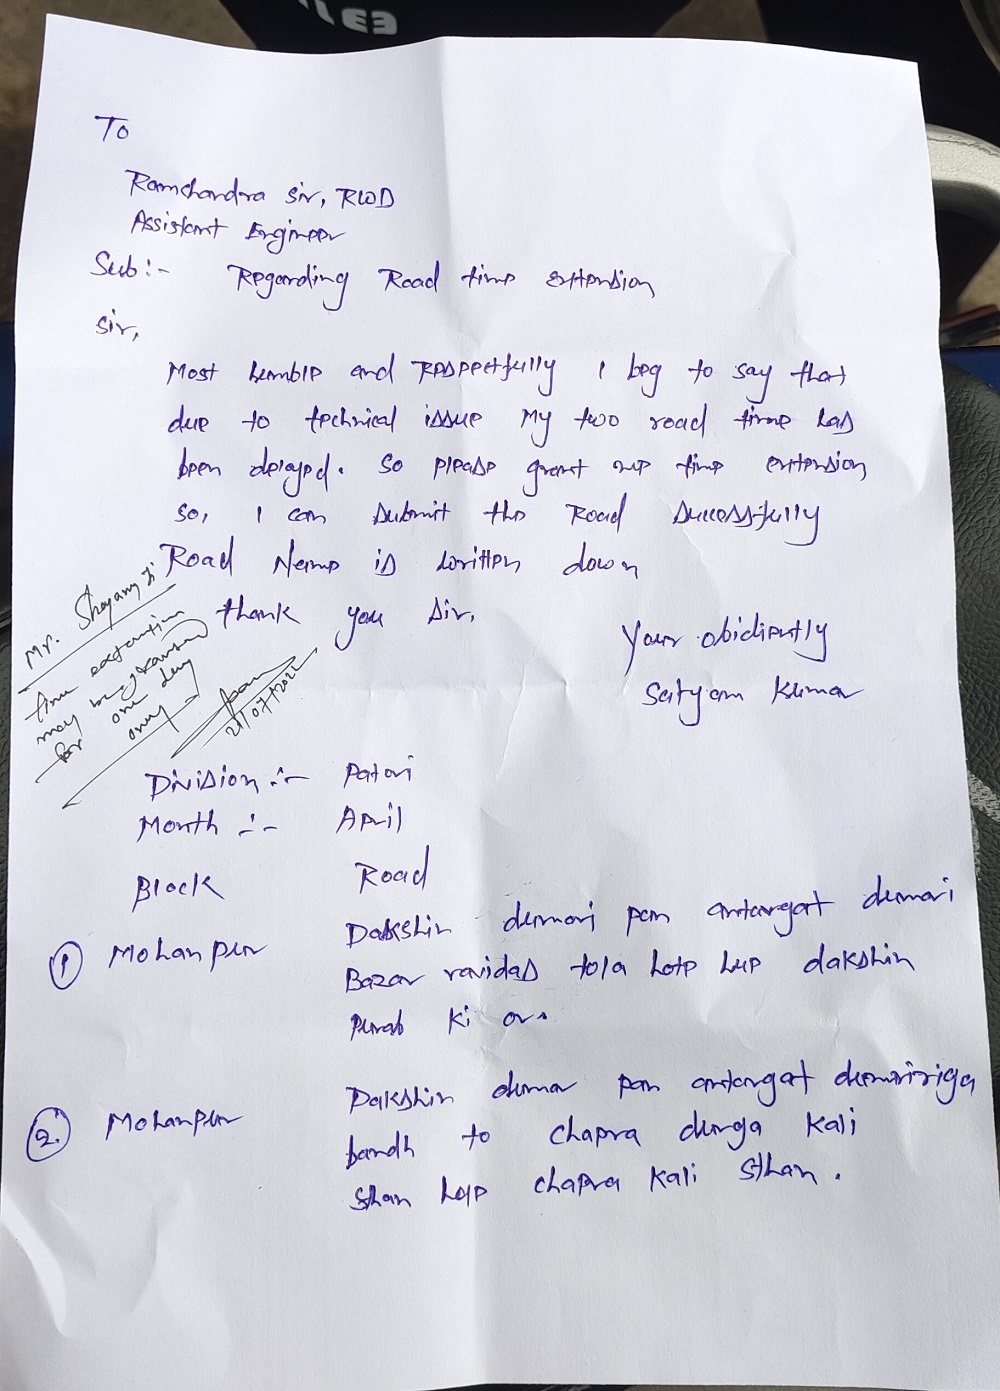 To
Ramchandra Sir, RWD
Assistant Engineer
Sub:- Regarding Road time extension
Sir,
Most humble and Respectfully I beg to say that
due to technical issue My two road time has
been delayed. So please grant me time extension
so, I can submit the Road successfully
Road Name is written down
thank you sir.
Your obidiently
Satyam Kumar
Mr. Shayam Ji
time extention
may be
for one day
only
21/07/2022
Division :- Patori
Month :- April
Block Road
① Mohanpur Dakshin dumari pan antargat dumari
Bazar ravidas tola hote hue dakshin
purab ki or.
②. Mohanpur Dakshin dumar pan antargat
bandh to chapra durga kali
sthan hote chapra kali sthan.